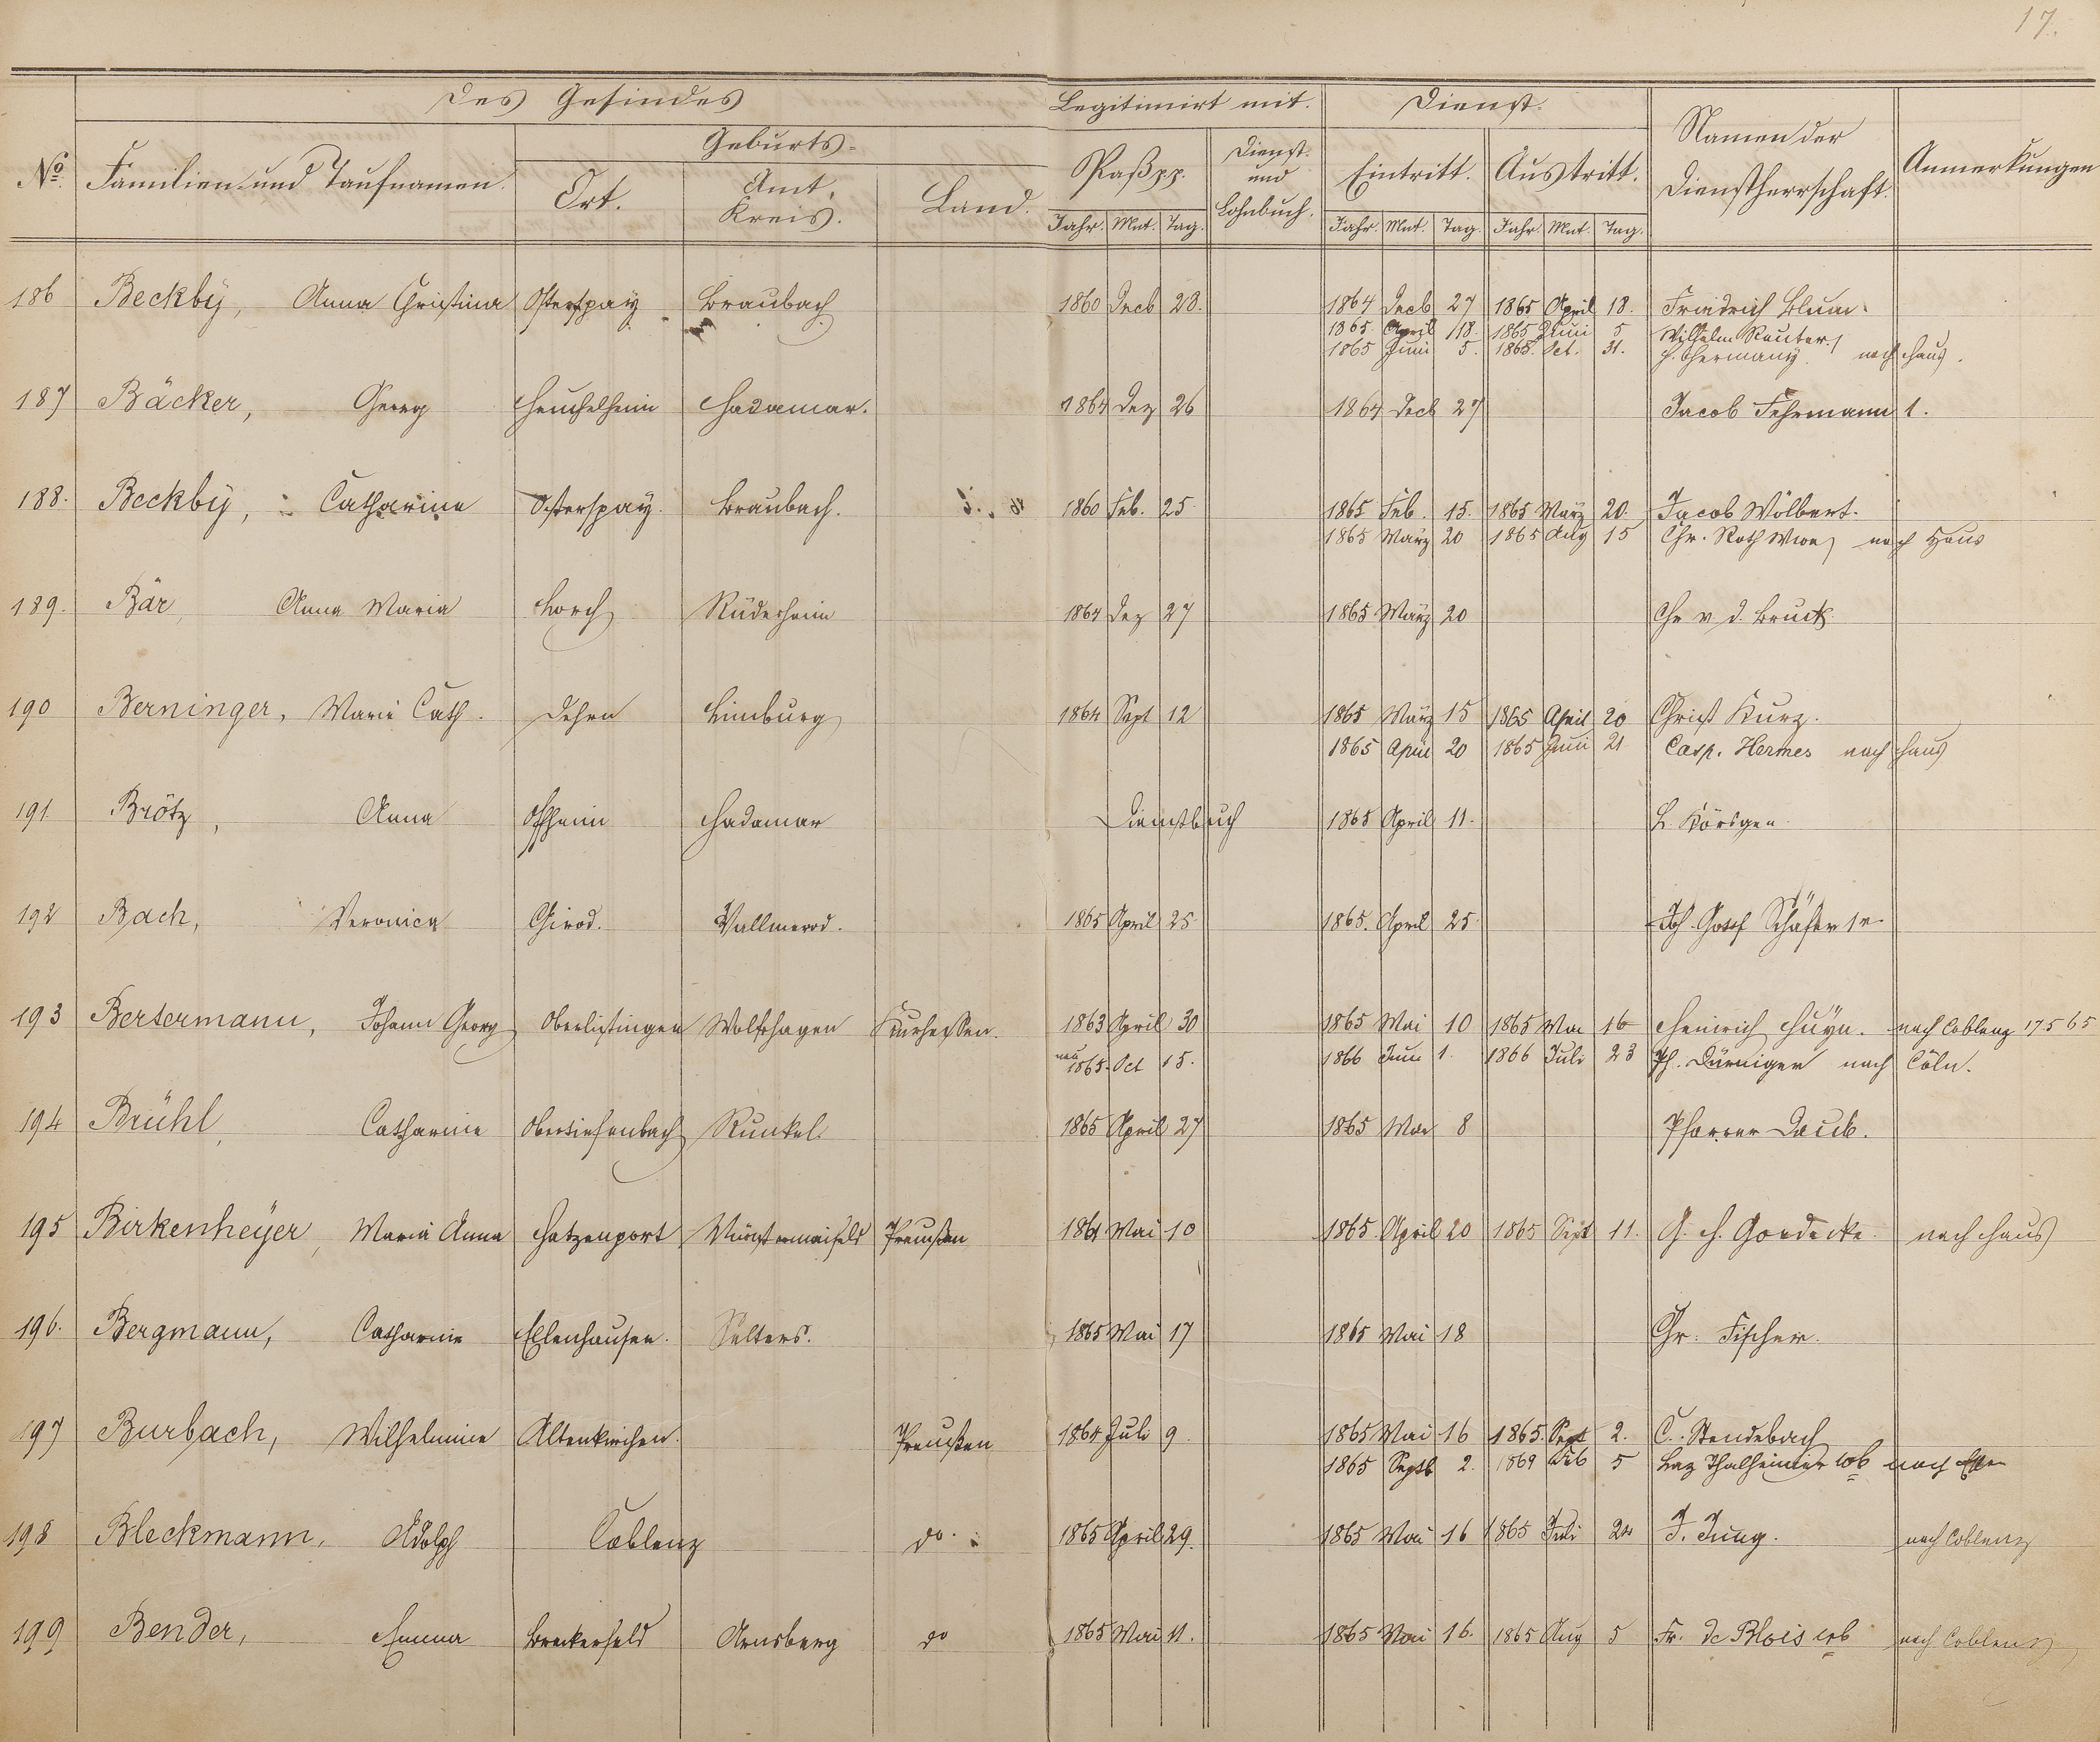 17.
Des Gesindes Legitimirt mit. Dienst.
No. Familien- und Taufnamen. Geburts- Paß pp. Dienst- und Lohnbuch. Eintritt. Austritt. Namen der Dienstherrschaft. Anmerkungen
Ort. Amt, Kreis. Land.
Jahr. Mnt. Tag. Jahr. Mnt. Tag. Jahr. Mnt. Tag.
186 Beckby, Anna Christina Osterspay Braubach 1860 Decb 28. 1864 Decb 27 1865 April 18. Friedrich Blum.
1865 April 18. 1865 Juni 5 Wilhelm Reuter.
1865 Juni 5. 1865. Oct. 31. H. Hermany. nach Haus.
187 Bäcker, Georg Heuchelheim Hadamar. 1864 Dez 26 1864 Decb 27 Jacob Fehrmann 1.
188. Beckby, Catharina Osterspay. Braubach. 1860 Feb. 25. 1865 Feb. 15. 1865 März 20. Jacob Wölbert.
1865 März 20 1865 Aug 15 Chr. Roth Wwe nach Haus
189. Bär, Anna Maria Lorch Rüdesheim 1864 Dez 27 1865 März 20 Chr v d. Bruck.
190 Berninger, Marie Cath. Dehrn Limburg 1864 Sept 12 1865 März 15 1865 April 20 Christ Kurz.
1865 April 20 1865 Juni 21 Casp. Hermes nach Haus
191. Brötz, Anna Offheim Hadamar Dienstbuch 1865 April 11. L. Körsgen.
192 Bach, Veronica Girod. Wallmerod. 1865 April 25. 1865. April 25. Joh. Josef Schäfer 1r
193 Bertermann, Johann Georg Oberlistingen Wolfshagen Kurhessen. 1863 April 30 1865 Mai 10 1865 Mai 16 Heinrich Huyn. nach Coblenz 17 5 65
neu 1865. Oct 15. 1866 Juni 1. 1866 Juli 23 Ph. Düringer nach Cöln.
194 Brühl, Catharine Obertiefenbach Runkel. 1865 April 27 1865 Mai 8 Pfarrer Daub.
195 Birkenheyer, Maria Anna Hatzenport Münstermaifeld Preußen 1864 Mai 10 1865. April 20 1865 Sept 11. G. H. Goedecke nach Haus
196. Bergmann, Catharine Ellenhausen. Selters. 1865 Mai 17 1865 Mai 18 Chr. Fischer.
197 Burbach, Wilhelmine Altenkirchen. Preußen 1864 Juli 9. 1865 Mai 16 1865. Sept 2. C. Stendebach
1865 Septb 2. 1869 Feb 5 Laz Thalheimer nach
198 Bleckmann, Adolph Coblenz do. 1865 April 29. 1865 Mai 16 1865 Juli 24 J. Jung. nach Coblenz
199 Bender, Emma Breckerfeld Arnsberg do 1865 Mai 11. 1865 Mai 16. 1865 Aug 5 Fr. de Blois nach Coblenz